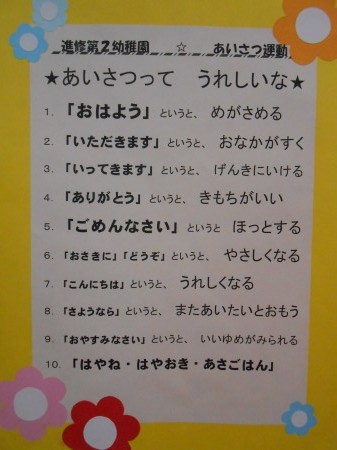 進修第2幼稚園 ☆ あいさつ運動
★あいさつって うれしいな★
1. 「おはよう」というと、 めがさめる
2. 「いただきます」というと、 おなかがすく
3. 「いってきます」というと、 げんきにいける
4. 「ありがとう」というと、 きもちがいい
5. 「ごめんなさい」というと ほっとする
6. 「おさきに」「どうぞ」というと、 やさしくなる
7. 「こんにちは」というと、 うれしくなる
8. 「さようなら」というと、 またあいたいとおもう
9. 「おやすみなさい」というと、 いいゆめがみられる
10. 「はやね・はやおき・あさごはん」